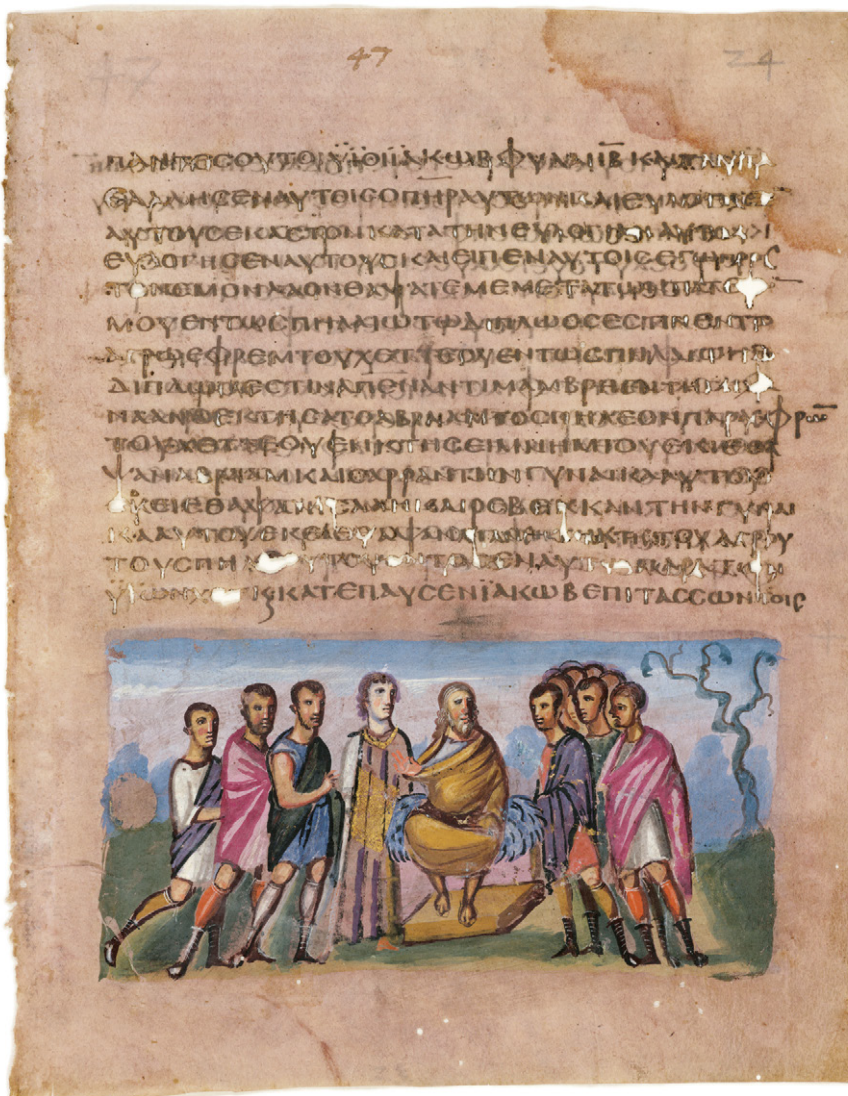 47
24
ΠΑΝΤΕCΟΥΤΟΙΥΪΟΙΪΑΚΩΒΦΥΛΑΙΙΒΚΑΙΤΑΥΤΑ
ΕΛΑΛΗCΕΝΑΥΤΟΙCΟΠΗΡΑΥΤΩΝΚΑΙΕΥΛΟΓΗCΕ
ΑΥΤΟΥCΕΚΑCΤΟΝΚΑΤΑΤΗΝΕΥΛΟΓΙΑΝΑΥΤΟΥ
ΕΥΛΟΓΗCΕΝΑΥΤΟΥCΚΑΙΕΙΠΕΝΑΥΤΟΙCΕΓΩΠΡΟC
ΤΟΝΕΜΟΝΛΑΟΝΘΑΨΑΤΕΜΕΜΕΤΑΤΩΝΠΑΤΕ
ΜΟΥΕΝΤΩCΠΗΛΑΙΩΤΩΔΙΠΛΩΟCΕCΤΙΝΕΝΤΩ
ΑΓΡΩΕΦΡΕΜΤΟΥΧΕΤΤΕΟΥΕΝΤΩCΠΗΛΑΙΩΤΩ
ΔΙΠΛΩΤΩΕCΤΙΝΑΠΕΝΑΝΤΙΜΑΜΒΡΗΕΝΤΗΓΗ
ΝΑΑΝΟΕΚΤΗCΑΤΟΑΒΡΑΑΜΤΟCΠΗΛΕΟΝΠΑΡΑΕΦΡΩΜ
ΤΟΥΧΕΤΤΕΟΥΕΝΚΤΗCΕΙΜΝΗΜΕΙΟΥΕΚΙΕΘΑ
ΨΑΝΑΒΡΑΑΜΚΑΙCΑΡΡΑΝΤΗΝΓΥΝΑΙΚΑΑΥΤΟΥ
ΕΚΕΙΕΘΑΨΑΝΙCΑΑΚΚΑΙΡΕΒΕΚΚΑΝΤΗΝΓΥΝΑΙ
ΚΑΑΥΤΟΥΕΚΕΙΕΘΑΨΑΝ
ΤΟΥCΠΗ ΟΥΤΟΥΟΝΤΟCΕΝΑΥΤΩΠΑΡΑΤΩΝ
ΥΪΩΝΧΕΤ ΚΑΤΕΠΑΥCΕΝΪΑΚΩΒΕΠΙΤΑCCΩΝΤΟΙC